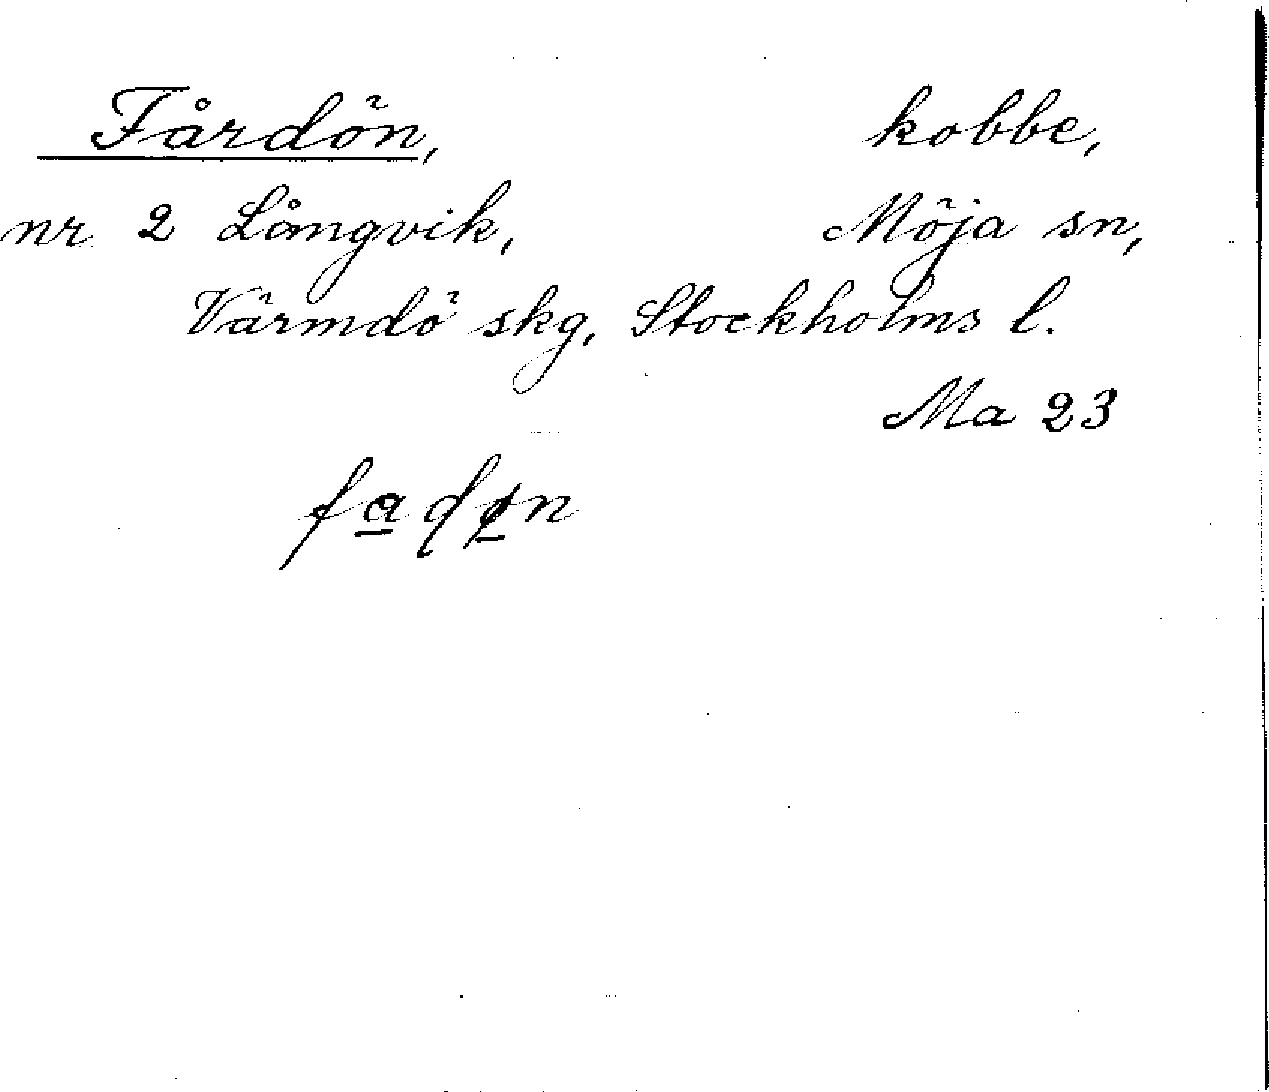 Fårdön, kobbe,
nr 2 Långvik, Möja sn,
Värmdö skg, Stockholms l.
Ma 23